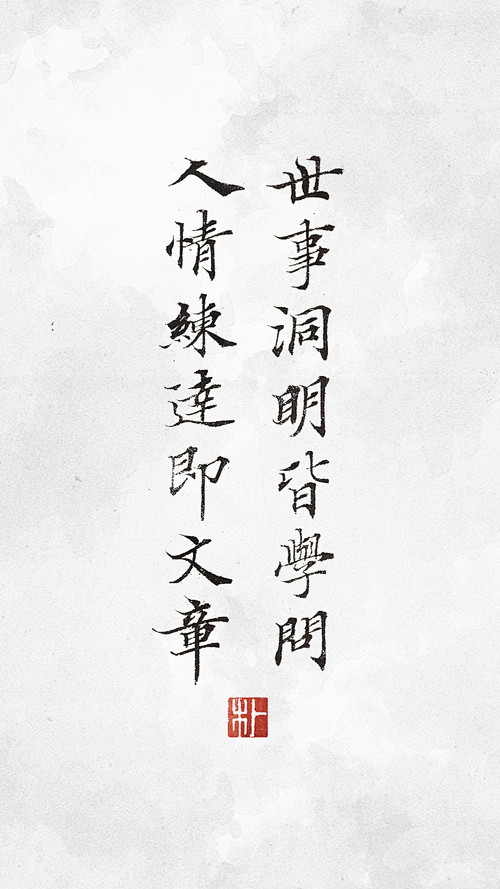 世事洞明皆學問
人情練達即文章
朴